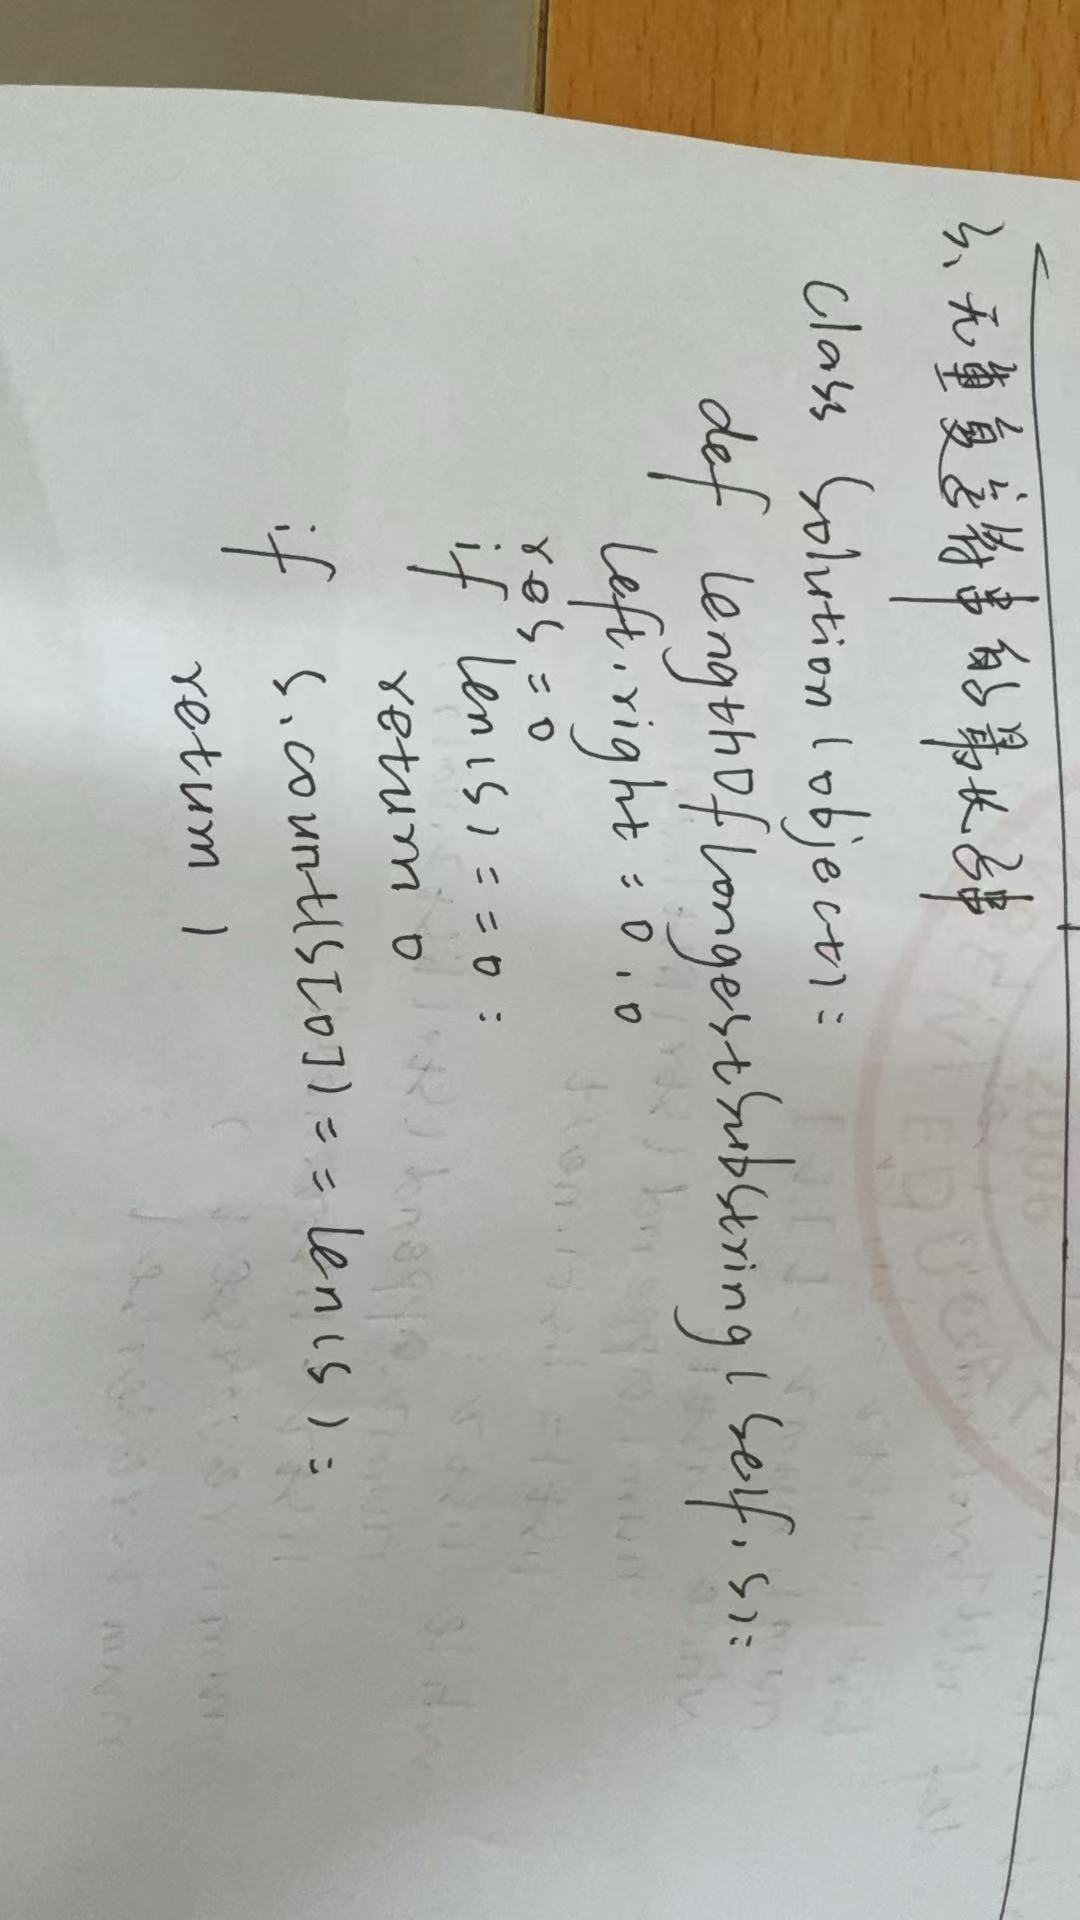 3、无重复字符串的最长子串
class Solution(object):
def lengthOfLongestSubstring(self, s):
left, right = 0, 0
res = 0
if len(s) == 0:
return 0
if s.count(s[0]) == len(s):
return 1